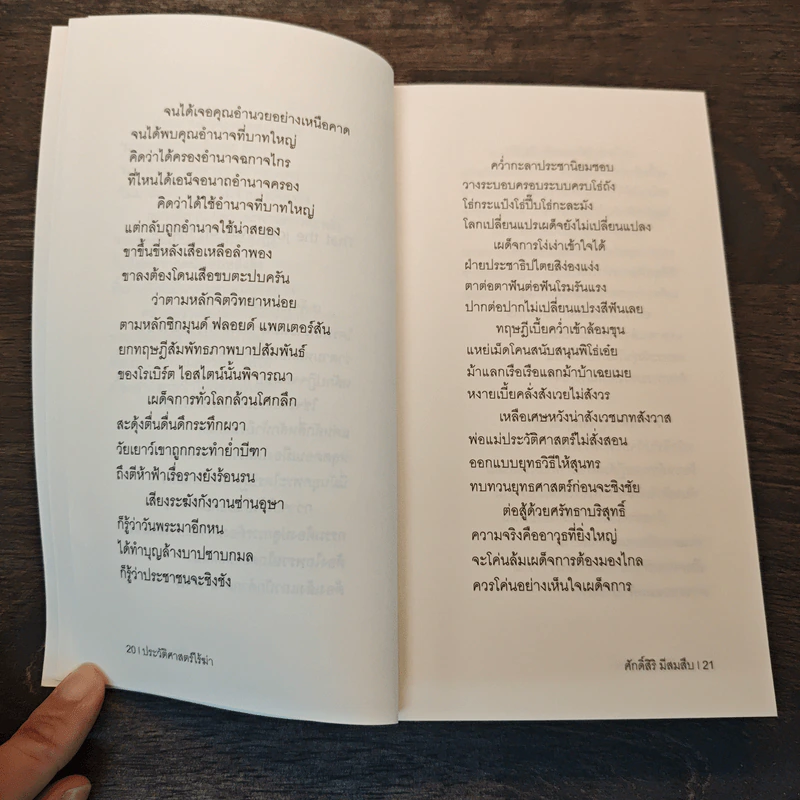 จนได้เจอคุณอำนวยอย่างเหนือคาด
จนได้พบคุณอำนาจที่บาทใหญ่
คิดว่าได้ครองอำนาจฉกาจไกร
ที่ไหนได้เอน็จอนาถอำนาจครอง
คิดว่าได้ใช้อำนาจที่บาทใหญ่
แต่กลับถูกอำนาจใช้น่าสยอง
ขาขึ้นขี่หลังเสือเหลือลำพอง
ขาลงต้องโดนเสือขบตะปบครัน
ว่าตามหลักจิตวิทยาหน่อย
ตามหลักซิกมุนด์ ฟลอยด์ แพตเตอร์สัน
ยกทฤษฎีสัมพัทธภาพบาปสัมพันธ์
ของโรเบิร์ต ไอสไตน์นั้นพิจารณา
เผด็จการทั่วโลกล้วนโศกลึก
สะดุ้งตื่นดื่นดึกระทึกผวา
วัยเยาว์เขาถูกกระทำย่ำบีฑา
ถึงตีห้าฟ้าเรื่อรางยังร้อนรน
เสียงระฆังกังวานซ่านอุษา
ก็รู้ว่าวันพระมาอีกหน
ได้ทำบุญล้างบาปซาบกมล
ก็รู้ว่าประชาชนจะชิงชัง
20 | ประวัติศาสตร์ไร้ฆ่า
คว่ำกะลาประชานิยมชอบ
วางระบอบครอบระบบครบโข่ถัง
โข่กระแป๋งโข่ปี๊บโข่กะละมัง
โลกเปลี่ยนแปรเผด็จยังไม่เปลี่ยนแปลง
เผด็จการโง่เง่าเข้าใจได้
ฝ่ายประชาธิปไตยสิง่องแง่ง
ตาต่อตาฟันต่อฟันโรมรันแรง
ปากต่อปากไม่เปลี่ยนแปรงสีฟันเลย
ทฤษฎีเบี้ยคว่ำเข้าล้อมขุน
แหย่เม็ดโคนสนับสนุนพิโธ่เอ๋ย
ม้าแลกเรือเรือแลกม้าบ้าเฉยเมย
หงายเบี้ยคลั่งสังเวยไม่สังวร
เหลือเศษหวังน่าสังเวชเภทสังวาส
พ่อแม่ประวัติศาสตร์ไม่สั่งสอน
ออกแบบยุทธวิธีให้สุนทร
ทบทวนยุทธศาสตร์ก่อนจะชิงชัย
ต่อสู้ด้วยศรัทธาบริสุทธิ์
ความจริงคืออาวุธที่ยิ่งใหญ่
จะโค่นล้มเผด็จการต้องมองไกล
ควรโค่นอย่างเห็นใจเผด็จการ
ศักดิ์สิริ มีสมสืบ | 21